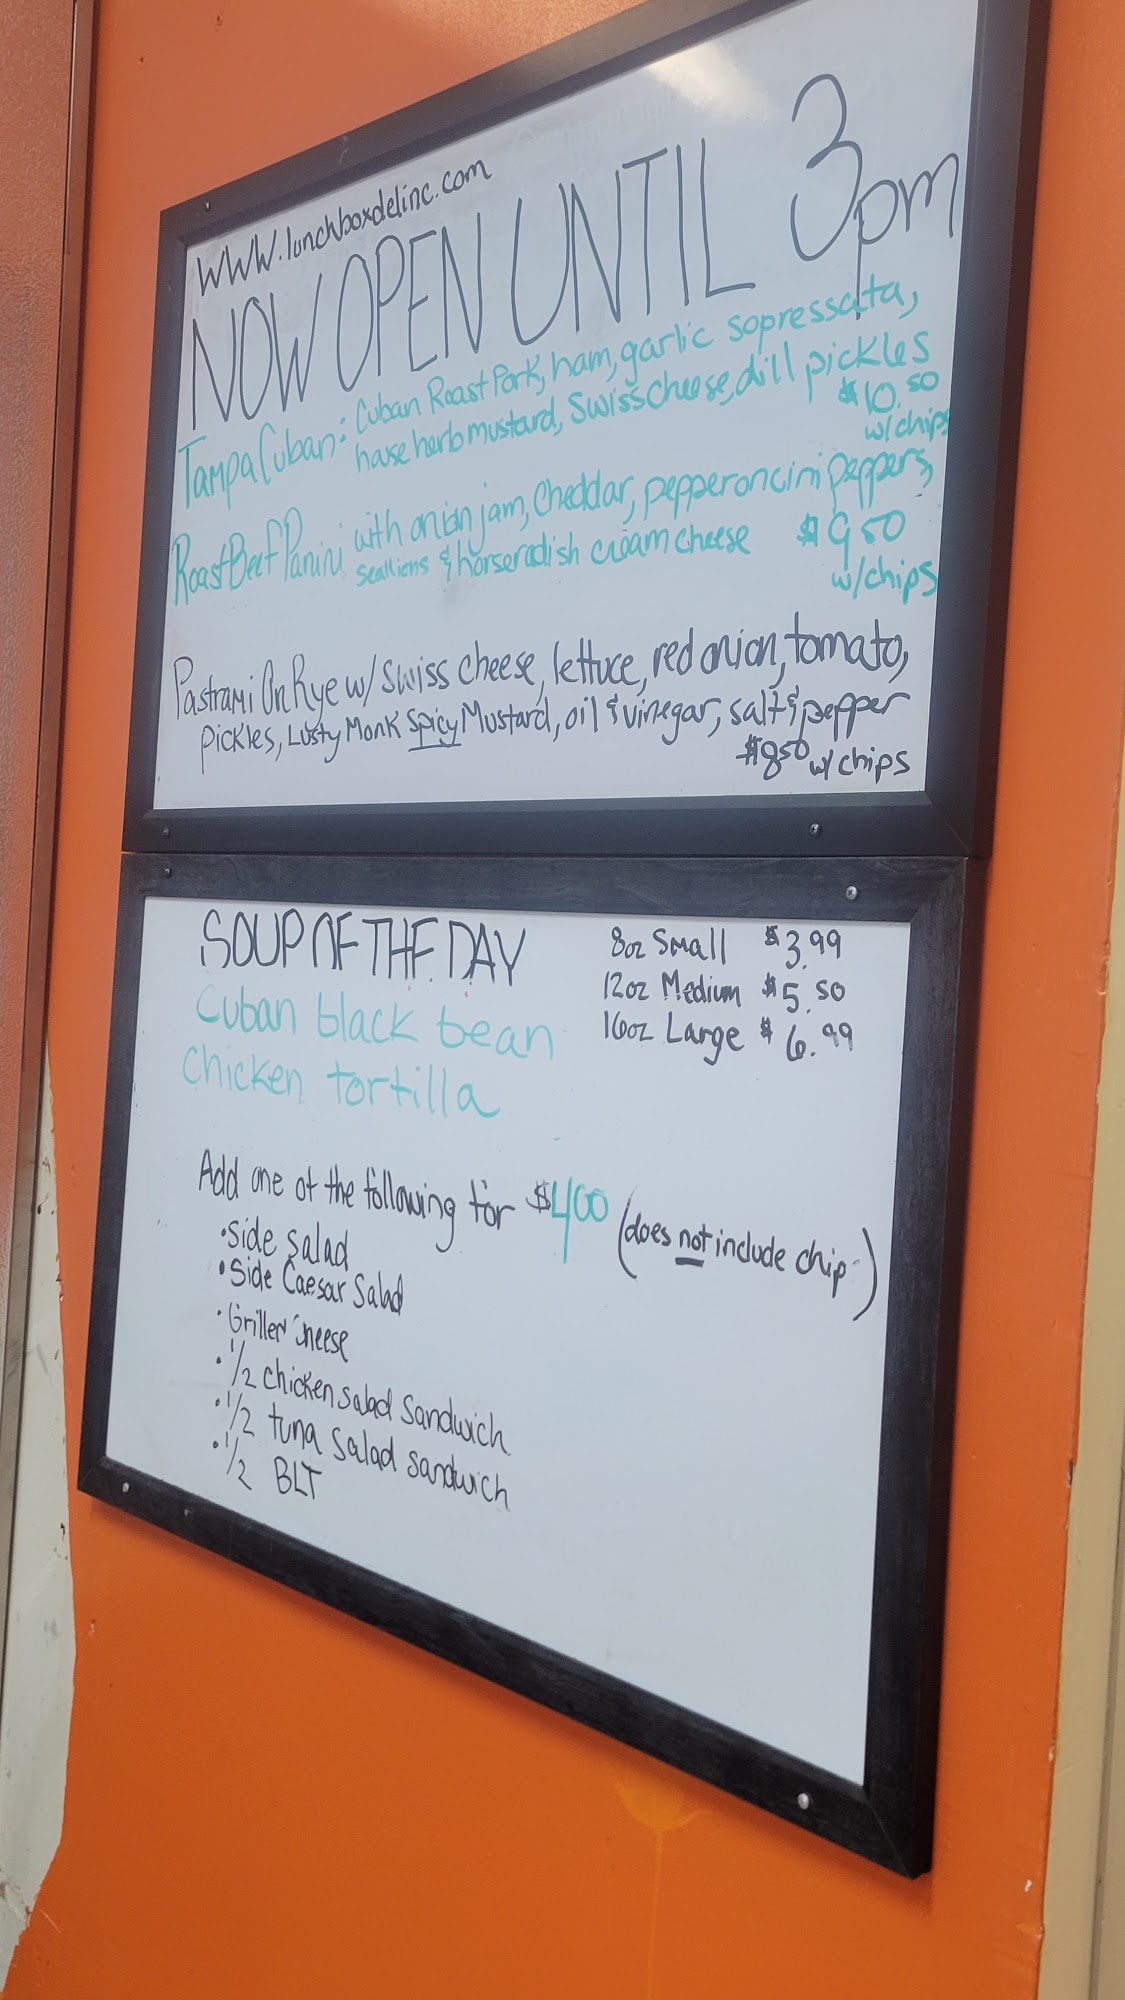 www.lunchboxdelinc.com
NOW OPEN UNTIL 3pm
Tampa Cuban: Cuban Roast Pork, ham, garlic sopressata,
house herb mustard, Swiss cheese, dill pickles
$10.50
w/chips
Roast Beef Panini with onion jam, Cheddar, pepperoncini peppers,
scallions & horseradish cream cheese $9.50
w/chips
Pastrami On Rye w/ Swiss cheese, lettuce, red onion, tomato,
Pickles, Lusty Monk Spicy Mustard, oil & vinegar, salt & pepper
$8.50 w/ chips
SOUP OF THE DAY
Cuban black bean
Chicken tortilla
8oz Small $3.99
12oz Medium $5.50
16oz Large $6.99
Add one of the following for $4.00 (does not include chip)
• Side Salad
• Side Caesar Salad
• Grilled Cheese
• 1/2 chicken salad sandwich
• 1/2 tuna salad sandwich
• 1/2 BLT